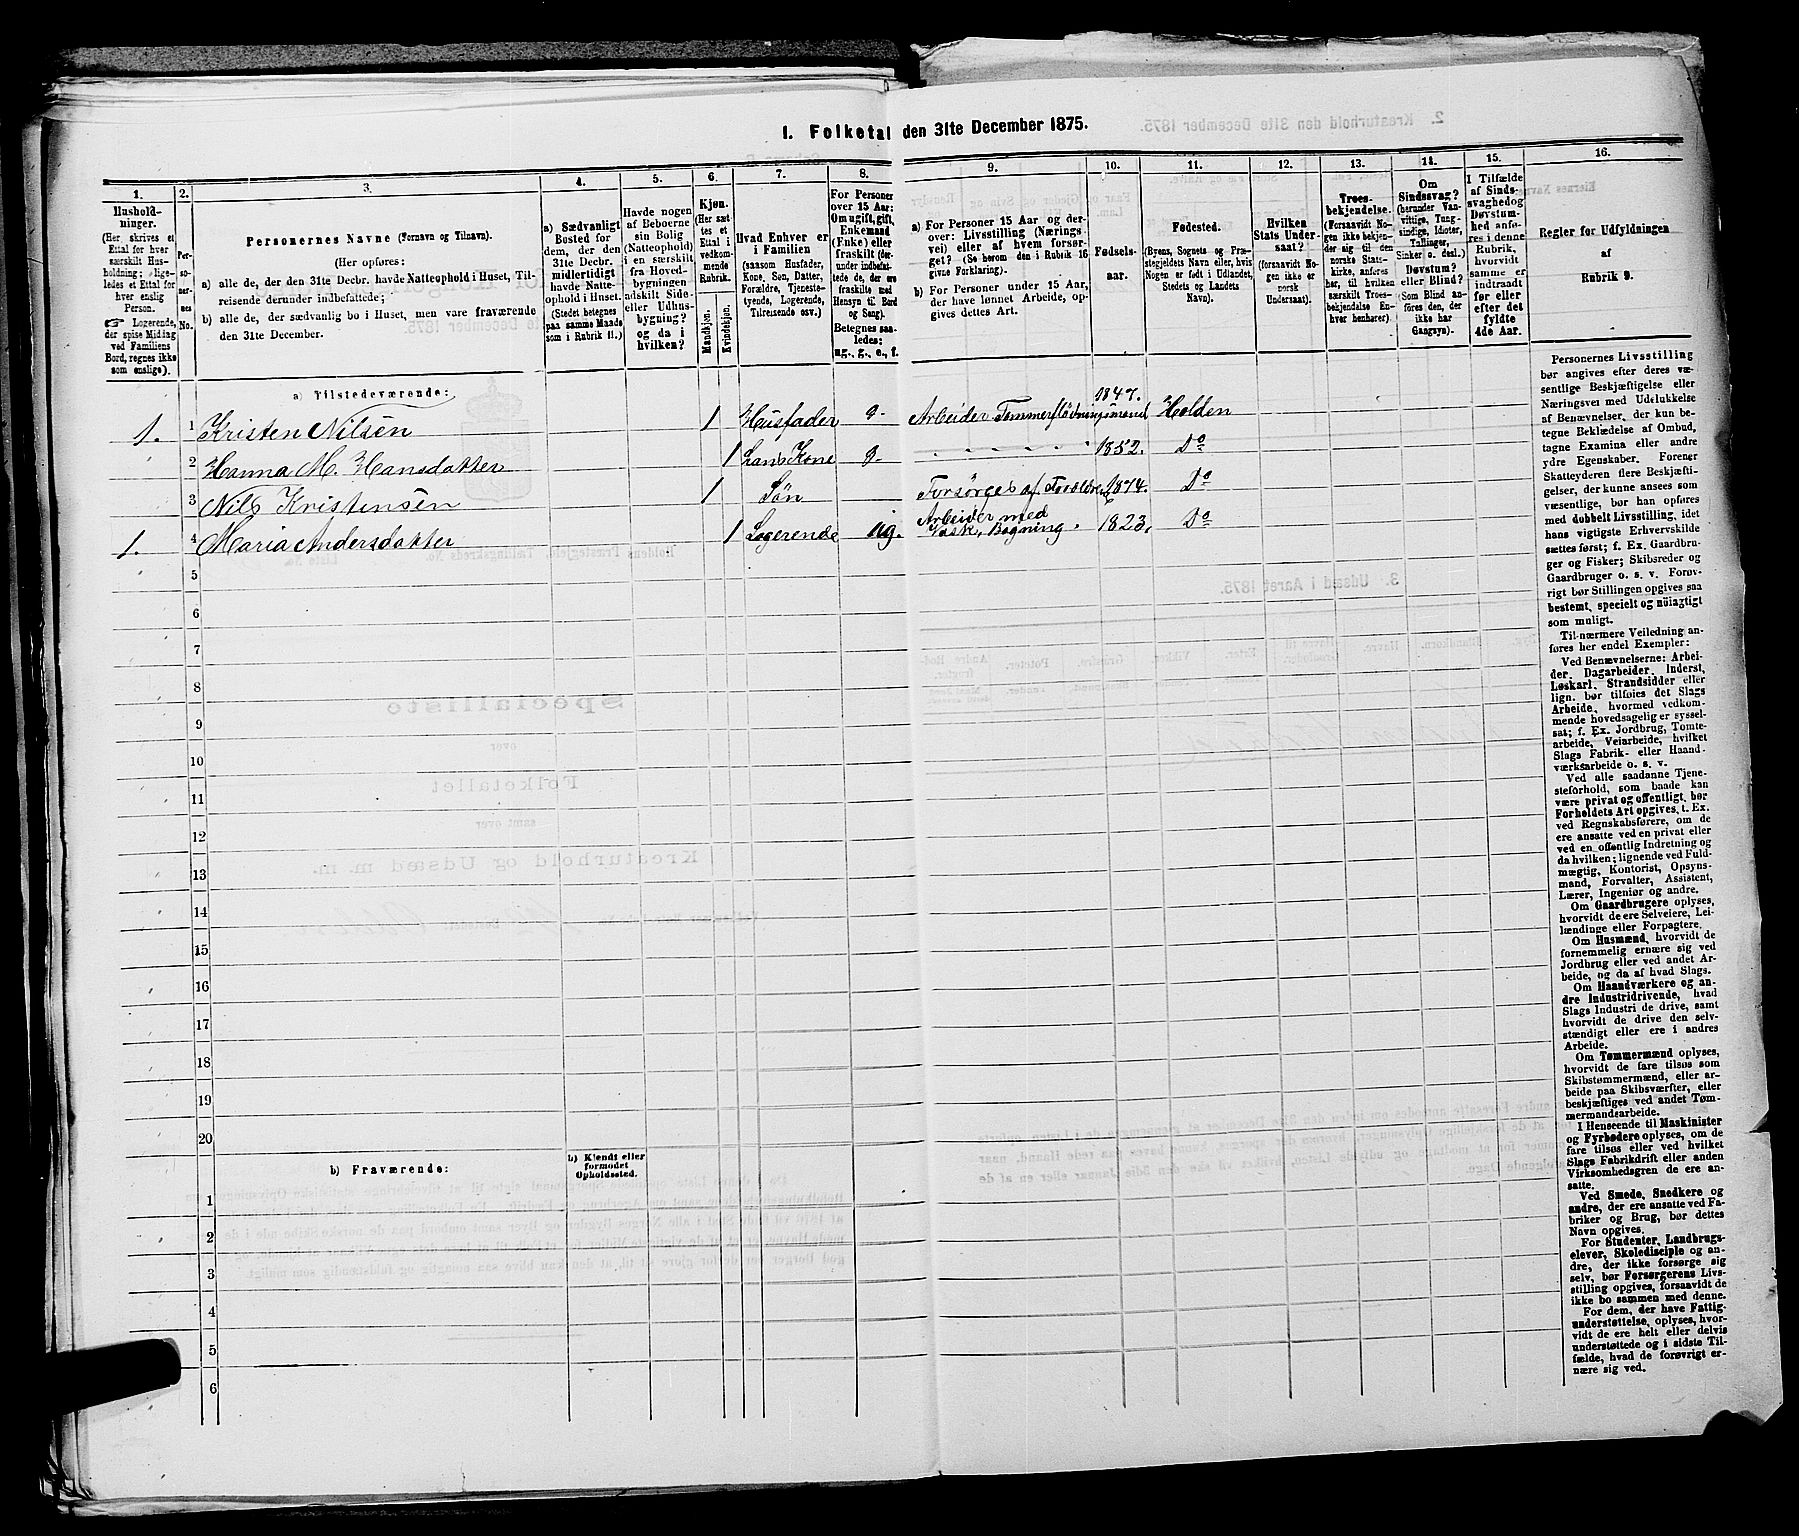 1. Folketal den 31te December 1875.
1. 2. 3. 4. 5. 6. 7. 8. 9. 10. 11. 12. 13. 14. 15. 16.
Hushold-
ninger.
(Her skrives et
Ettal for hver
særskilt Hus-
holdning; lige-
ledes et Ettal for
hver enslig
Person.
☞ Logerende,
der spise Middag
ved Familiens
Bord, regnes ikke
som enslige).
Per-
so-
ner-
nes
No.
Personernes Navne (Fornavn og Tilnavn).
(Her opføres:
a) alle de, der den 31te Decbr. havde Natteophold i Huset, Til-
reisende derunder indbefattede;
b) alle de, der sædvanlig bo i Huset, men vare fraværende
den 31te December.
a) Sædvanligt
Bosted for
dem, der den
31te Decbr.
midlertidigt
havde Natte-
ophold i Huset.
(Stedet betegnes
paa samme Maade
som i Rubrik 11.)
Havde nogen
af Beboerne
sin Bolig
(Natteophold)
i en særskilt
fra Hoved-
bygningen
adskilt Side-
eller Udhus-
bygning?
og da i
hvilken?
Kjøn.
(Her sæt-
tes et
Ettal i
vedkom-
mende
Rubrik.
Mandkjøn.
Kvindekjøn.
Hvad Enhver er
i Familien
(saasom Husfader,
Kone, Søn, Datter,
Forældre, Tjeneste-
tyende, Logerende,
Tilreisende osv.)
For Personer
over 15 Aar:
Om ugift, gift,
Enkemand
(Enke) eller
fraskilt (der-
under indbefat-
tede de, der ere
fraskilte med
Hensyn til Bord
og Seng).
Betegnes saa-
ledes:
ug., g., e., f.
a) For Personer 15 Aar og der-
over: Livsstilling (Nærings-
vei) eller af hvem forsør-
get? (Se herom den i Rubrik 16
givne Forklaring).
b) For Personer under 15 Aar,
der have lønnet Arbeide, op-
gives dettes Art.
Fødsels-
aar.
Fødested.
(Byens, Sognets og Præ-
stegjeldets Navn eller, hvis
Nogen er født i Udlandet,
Stedets og Landets
Navn).
Hvilken
Stats Under-
saat?
(forsaavidt No-
gen ikke er
norsk
Undersaat).
Troes-
bekjendelse.
(Forsaavidt No-
gen ikke bekjen-
der sig til den
norske Stats-
kirke, anføres
her, til hvilken
særskilt Troes-
bekjendelse En-
hver henhører).
Om
Sindssvag?
(herunder Van-
vittige, Idioter,
Tungsindige, Tullinger,
Sinker o. desl.)
Døvstum?
eller Blind?
(Som Blind an-
føres den, der
ikke har
Gangsyn).
I Tilfælde
af Sinds-
svaghed og
Døvstum-
hed anfø-
res i denne
Rubrik,
hvorvidt
samme er
indtraadt
før eller
efter det
fyldte
4de Aar.
Regler for Udfyldningen
af
Rubrik 9.
a) Tilstedeværende:
1. 1 Kristen Nilsen 1 Husfader g. Arbeider Tømmerflødningsmand 1847. Holden
2 Hanna M. Hansdatter 1 hans Kone g. 1852. Do
3 Nils Kristensen 1 Søn Forsørges af Forældre 1874. Do
1. 4 Maria Andersdatter 1 Logerende ug. Arbeider med
Vask, Bagning 1823. Do
5
6
7
8
9
10
11
12
13
14
15
16
17
18
19
20
b) Fraværende:
b) Kjendt eller
formodet
Opholdssted.
1
2
3
4
5
6
Personernes Livsstilling
bør angives efter deres væ-
sentlige Beskjæftigelse eller
Næringsvei med Udelukkelse
af Benævnelser, der kun be-
tegne Beklædelse af Ombud,
tagne Examina eller andre
ydre Egenskaber. Forener
Skatteyderen flere Beskjæfti-
gelser, der kunne ansees som
væsentlige, bør han opføres
med dobbelt Livsstilling, idet
hans vigtigste Erhvervskilde
sættes først; f. Ex. Gaardbru-
ger og Fisker; Skibsreder og
Gaardbruger o. s. v. Forøv-
rigt bør Stillingen opgives saa
bestemt, specielt og nøiagtigt
som muligt.
Til nærmere Veiledning an-
føres her endel Exempler:
Ved Benævnelserne: Arbei-
der, Dagarbeider, Inderst,
Løskarl, Strandsidder eller
lign. bør tilføies det Slags
Arbeide, hvormed vedkom-
mende hovedsagelig er syssel-
sat; f. Ex. Jordbrug, Tomte-
arbeide, Veiarbeide, hvilket
Slags Fabrik- eller Haand-
værksarbeide o. s. v.
Ved alle saadanne Tjene-
steforhold, som baade kan
være privat og offentligt, bør
Forholdets Art opgives, t. Ex.
ved Regnskabsførere, om de
ere ansatte ved en privat eller
ved en offentlig Indretning og
da hvilken; lignende ved Fuld-
mægtig, Kontorist, Opsyns-
mand, Forvalter, Assistent,
Lærer, Ingeniør og andre.
Om Gaardbrugere oplyses,
hvorvidt de ere Selveiere, Lei-
lændinge eller Forpagtere.
Om Husmænd, hvorvidt de
fornemmelig ernære sig ved
Jordbrug eller ved andet Ar-
beide, og da af hvad Slags.
Om Haandværkere og an-
dre Industridrivende, hvad
Slags Industri de drive, samt
hvorvidt de drive den selv-
stændigt eller ere i andres
Arbeide.
Om Tømmermænd oplyses,
hvorvidt de fare tilsøs som
Skibstømmermænd, eller ar-
beide paa Skibsværfter, eller
beskjæftiges ved andet Tøm-
mermandsarbeide.
I Henseende til Maskinister
og Fyrbødere oplyses, om de
fare tilsøs eller ved hvilket
Slags Fabrikdrift eller anden
Virksomhedsgren de ere an-
satte.
Ved Smede, Snedkere og
andre, der ere ansatte ved Fa-
briker og Brug, bør dettes
Navn opgives.
For Studenter, Landbrugs-
elever, Skoledisciple og an-
dre, der ikke forsørge sig
selv, bør Forsørgerens Livs-
stilling opgives, forsaavidt de
ikke bo sammen med denne.
For dem, der have Fattig-
understøttelse, oplyses, hvor-
vidt de ere helt eller delvis
understøttede og i sidste Til-
fælde, hvad de forøvrigt er-
nære sig ved.